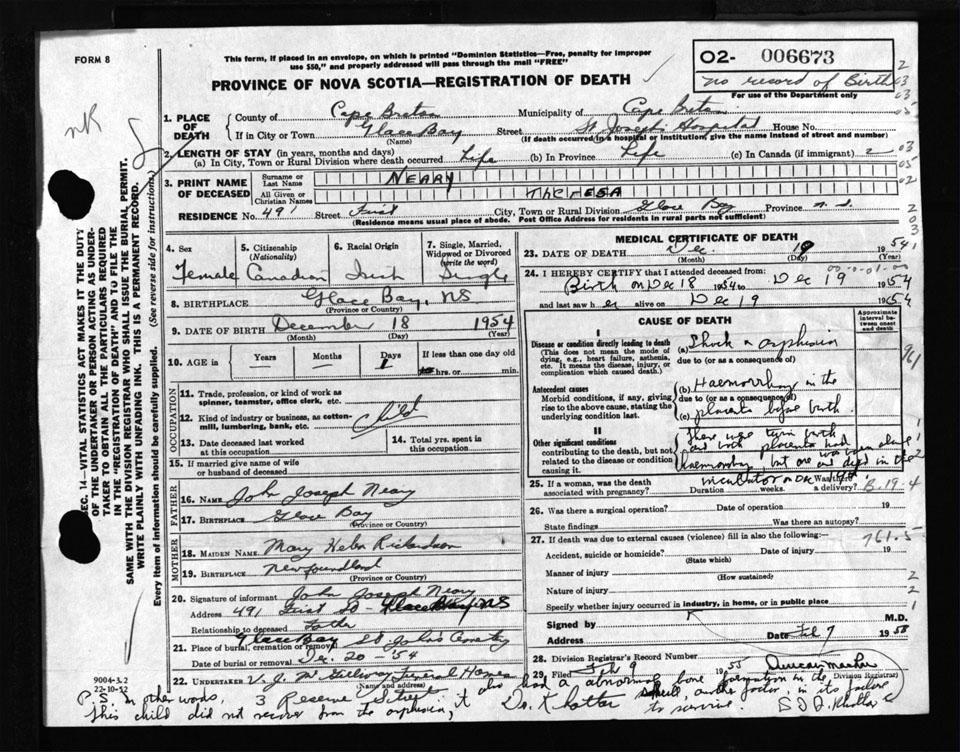 FORM 8
This form, if placed in an envelope, on which is printed "Dominion Statistics—Free, penalty for improper
use $50," and properly addressed will pass through the mail "FREE"
PROVINCE OF NOVA SCOTIA—REGISTRATION OF DEATH
02- 006673
no record of Birth
For use of the Department only
nR
1. PLACE OF DEATH
County of Cape Breton Municipality of Cape Breton
If in City or Town Glace Bay Street St Joseph's Hospital House No.
(Name) (If death occurred in a hospital or institution, give the name instead of street and number)
2. LENGTH OF STAY (in years, months and days)
(a) In City, Town or Rural Division where death occurred Life (b) In Province Life (c) In Canada (if immigrant)
3. PRINT NAME OF DECEASED
Surname or Last Name NEARY
All Given or Christian Names THERESA
RESIDENCE No. 491 Street First City, Town or Rural Division Glace Bay Province N.S.
(Residence means usual place of abode. Post Office Address for residents in rural parts not sufficient)
4. Sex Female
5. Citizenship (Nationality) Canadian
6. Racial Origin Irish
7. Single, Married, Widowed or Divorced (write the word) Single
8. BIRTHPLACE Glace Bay, NS
(Province or Country)
9. DATE OF BIRTH December 18 1954
(Month) (Day) (Year)
10. AGE in Years Months Days 1 If less than one day old hrs. or min.
OCCUPATION
11. Trade, profession, or kind of work as spinner, teamster, office clerk, etc.
12. Kind of industry or business, as cotton-mill, lumbering, bank, etc.
Child
13. Date deceased last worked at this occupation
14. Total yrs. spent in this occupation
15. If married give name of wife or husband of deceased
FATHER
16. NAME John Joseph Neary
17. BIRTHPLACE Glace Bay
(Province or Country)
MOTHER
18. MAIDEN NAME Mary Helen Richardson
19. BIRTHPLACE Newfoundland
(Province or Country)
20. Signature of informant John Joseph Neary
Address 491 First St - Glace Bay NS
Relationship to deceased Father
21. Place of burial, cremation or removal Glace Bay St John's Cemetery
Date of burial or removal Dec. 20 - '54
22. UNDERTAKER V. J. McGillivray Funeral Homes
(Name and address)
3 Reserve Street
MEDICAL CERTIFICATE OF DEATH
23. DATE OF DEATH Dec. 19 1954
(Month) (Day)
24. I HEREBY CERTIFY that I attended deceased from:
Birth on Dec 18 1954 to Dec 19 1954
and last saw her alive on Dec 19 1954
CAUSE OF DEATH
Approximate interval between onset and death
I
Disease or condition directly leading to death
(This does not mean the mode of dying, e.g., heart failure, asthenia, etc. It means the disease, injury, or complication which caused death.)
(a) Shock & asphyxia
due to (or as a consequence of)
Antecedent causes
Morbid conditions, if any, giving rise to the above cause, stating the underlying condition last.
(b) Haemorrhage in the
due to (or as a consequence of)
(c) placenta before birth.
II
Other significant conditions
contributing to the death, but not related to the disease or condition causing it.
There was twin birth
and both placenta had
haemorrhage, but one was born alive and died in the
incubator on Dec 19th
25. If a woman, was the death associated with pregnancy? Duration weeks. Was there a delivery?
B.19-4
26. Was there a surgical operation? Date of operation 19
State findings Was there an autopsy?
27. If death was due to external causes (violence) fill in also the following:—
761.5
Accident, suicide or homicide? Date of injury 19
(State which)
Manner of injury
(How sustained)
Nature of injury
Specify whether injury occurred in industry, in home, or in public place
Signed by M.D.
Address Date Feb 7 1955
28. Division Registrar's Record Number
29. Filed Feb 9 1955
(Division Registrar)
P.S. in other words,
this child did not recover from the asphyxia, it
also had a abnormal bone formation in the
skull, another factor, in its failure
to survive.
Dr. Khattar
SEC. 14—VITAL STATISTICS ACT MAKES IT THE DUTY
OF THE UNDERTAKER OR PERSON ACTING AS UNDER-
TAKER TO OBTAIN ALL THE PARTICULARS REQUIRED
IN THE "REGISTRATION OF DEATH" AND TO FILE THE
SAME WITH THE DIVISION REGISTRAR WHO SHALL ISSUE THE BURIAL PERMIT.
WRITE PLAINLY WITH UNFADING INK. THIS IS A PERMANENT RECORD.
Every item of information should be carefully supplied. (See reverse side for instructions.)
9004-3.2
22-10-52